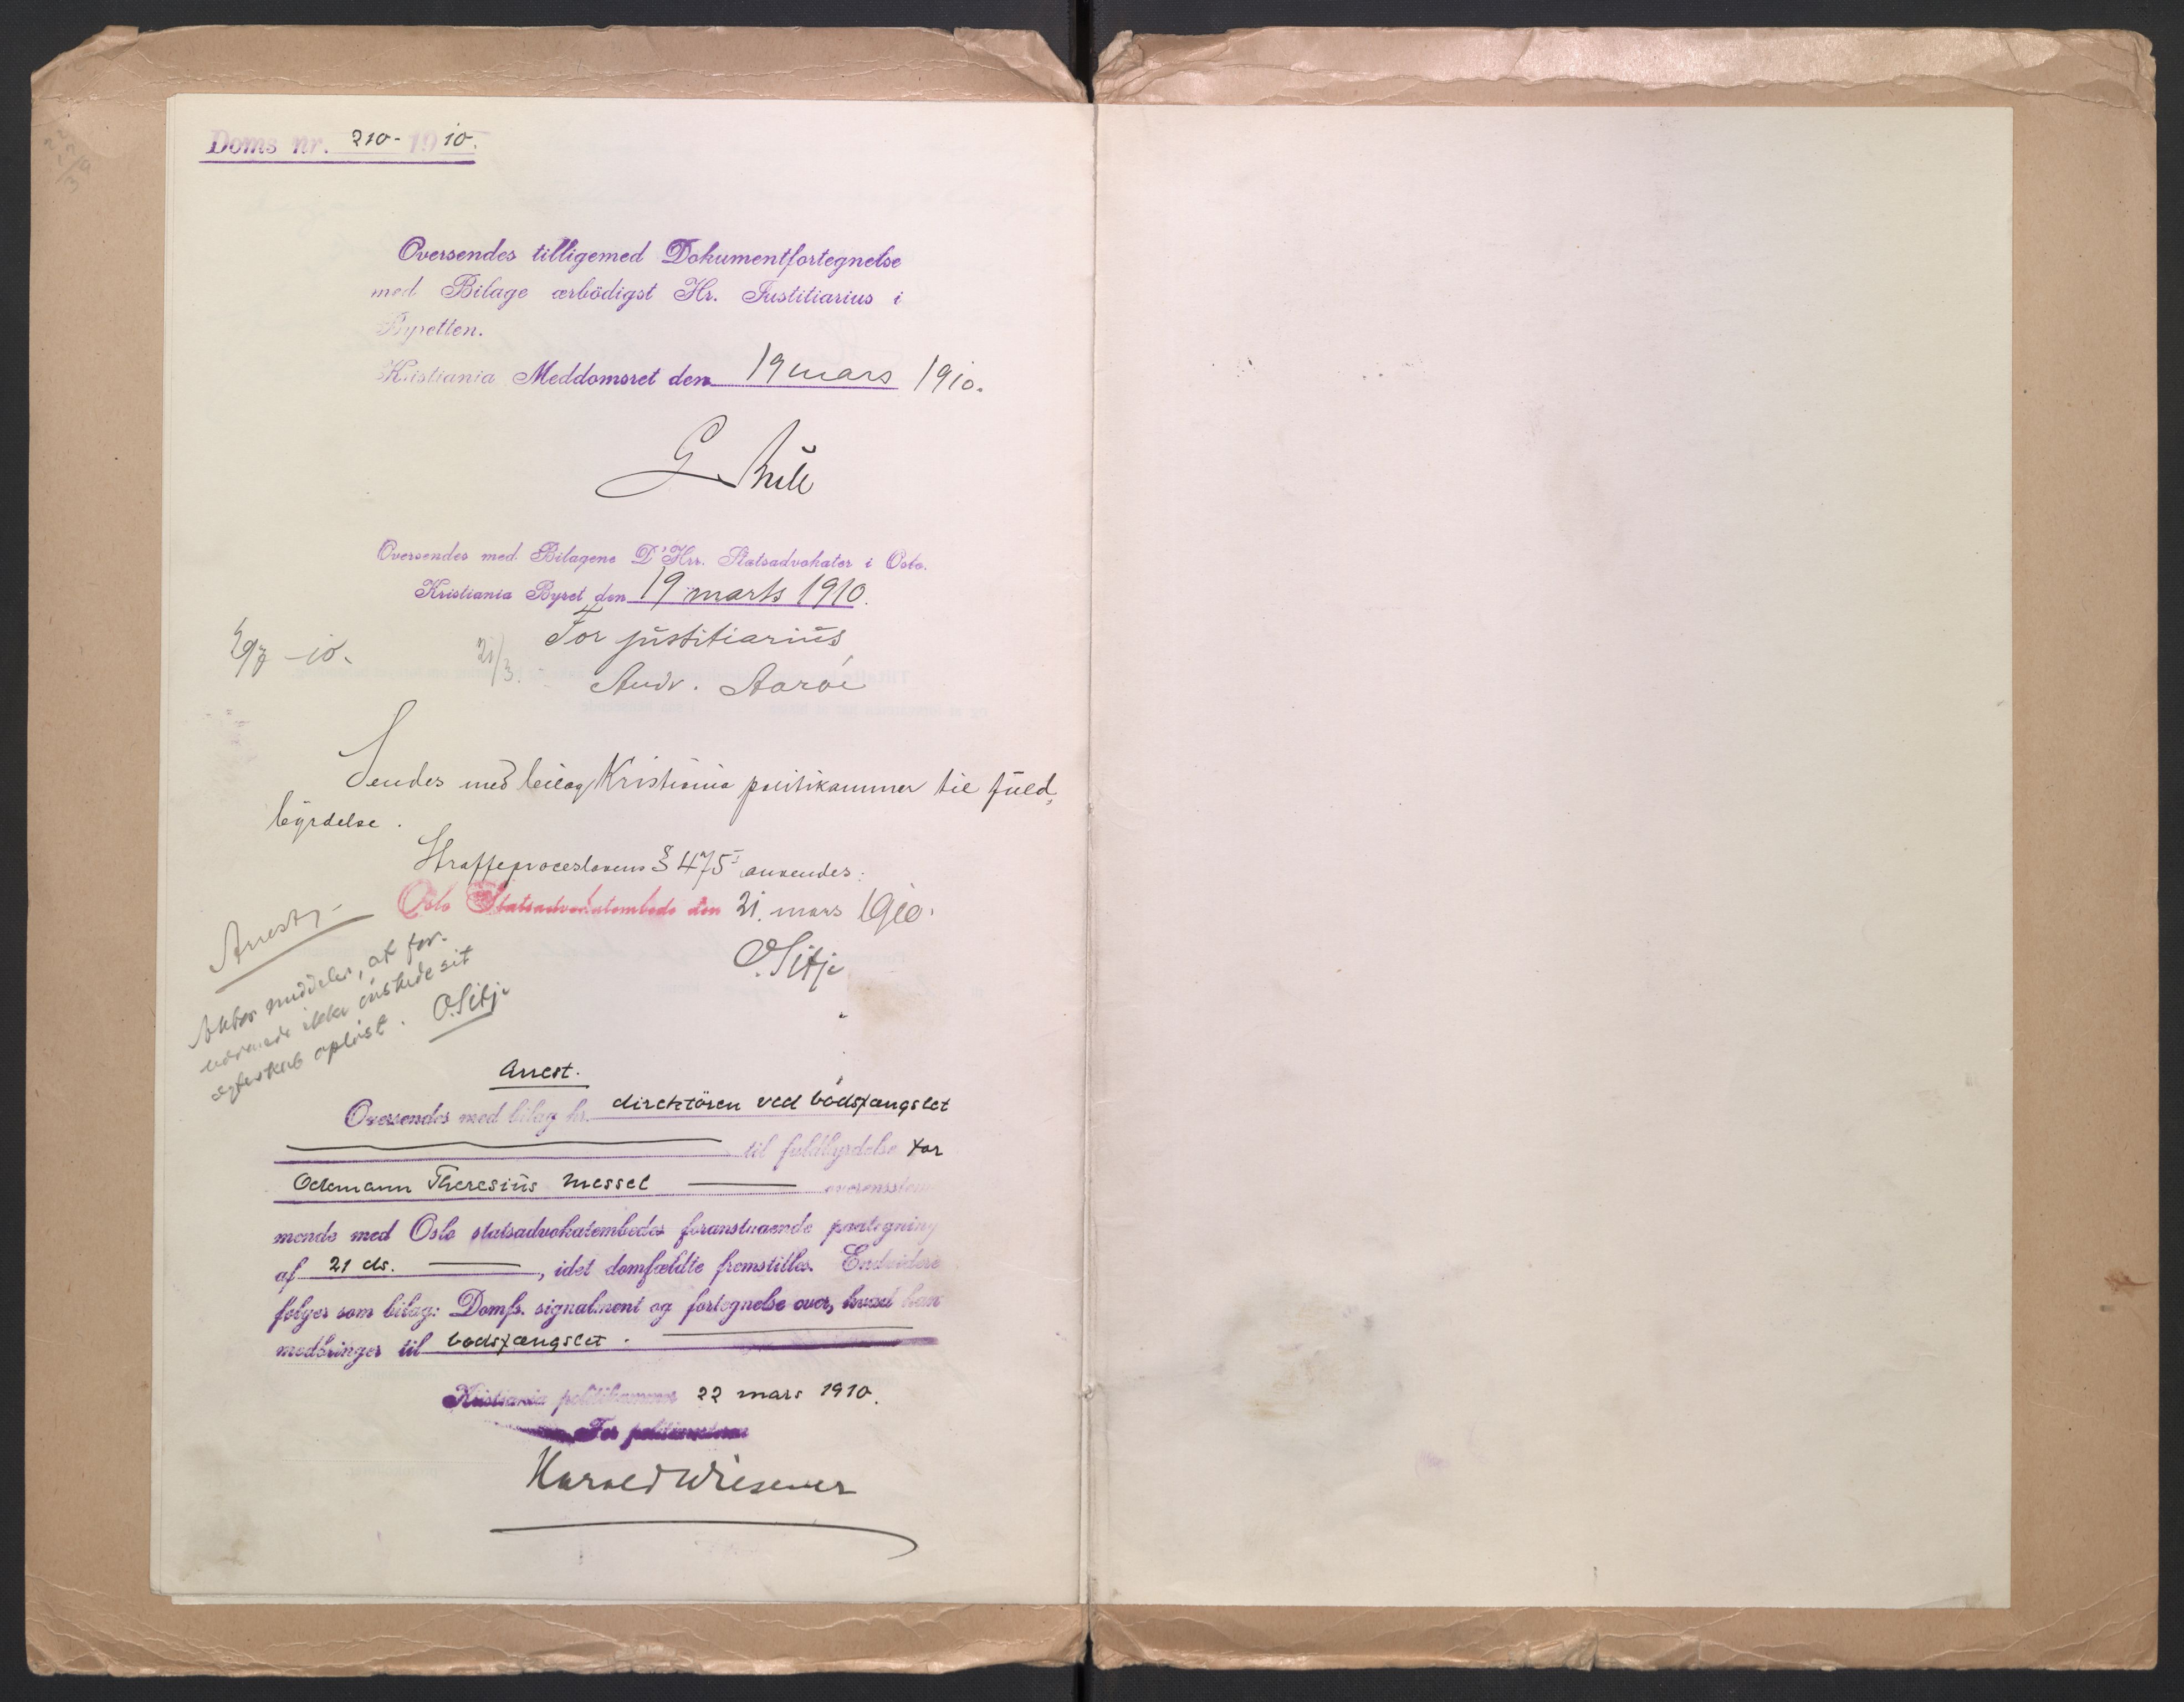 Doms nr. 210-1910.
Oversendes tilligemed Dokumentfortegnelse
med Bilage ærbödigst Hr. Justitiarius i
Byretten.
Kristiania Meddomsret den 19 mars 1910.
G.
Oversendes med Bilagene D'Hrr. Statsadvokater i Oslo.
Kristiania Byret den 19 marts 1910.
For justitiarius
Andr. Aaröe
-10.
21/3.
Sendes med bilag Kristiania politikammer til fuld,
byrdelse.
Straffeproceslovens § 475 anvendes.
Oslo Statsadvokatembede den 21. mars 1910.
O. Sitje
Arrest,-
Aktor meddeler, at for-
nærmede ikke önskede sit
egteskab oplöst. O. Sitje
Arrest.
Oversendes med bilag hr. direktören ved bodsfængslet
til fuldbyrdelse for
Odemann Theresius Messel overensstem
mende med Oslo statsadvokatembedes foranstaaende paategning
af 21 ds. , idet domfældte fremstilles. Endvidere
følger som bilag: Domfs. signalment og fortegnelse over, hvad han
medbringer til bodsfængslet.
Kristiania politikammer 22 mars 1910.
For politimesteren
Harald Wiesener